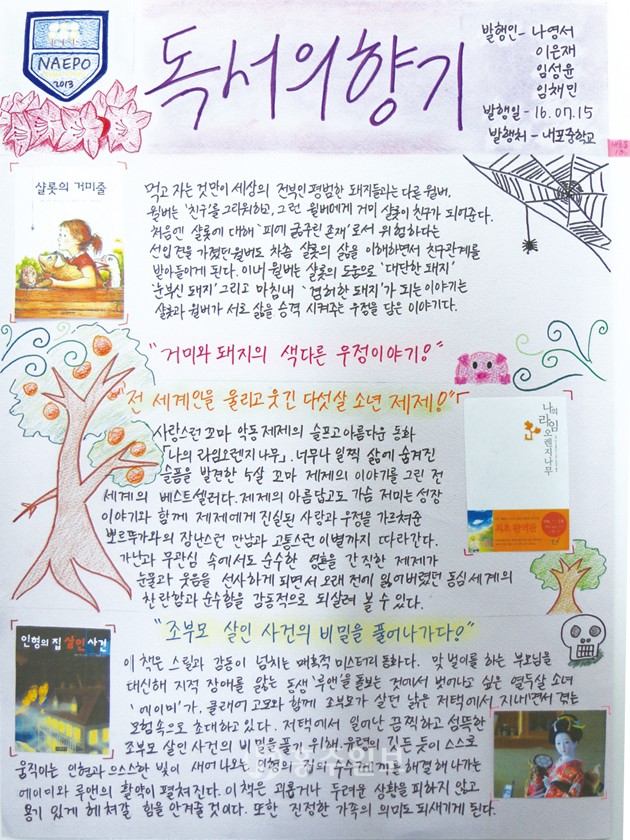 NAEPO
2013
독서의향기
발행인- 나영서
이은재
임성윤
임채민
발행일-16.07.15
발행처-내포중학교
샬롯의 거미줄
먹고 자는 것만이 세상의 전부인 평범한 돼지들과는 다른 윌버.
윌버는 '친구'를 그리워하고, 그런 윌버에게 거미 샬롯이 친구가 되어준다.
처음엔 샬롯에 대해 '피에 굶주린 존재'로서 위험하다는
선입견을 가졌던 윌버도 차츰 샬롯의 삶을 이해하면서 친구관계를
받아들이게 된다. 이내 윌버는 샬롯의 도움으로 '대단한 돼지'
'눈부신 돼지' 그리고 마침내 '겸허한 돼지'가 되는 이야기는
샬롯과 윌버가 서로 삶을 승격 시켜주는 우정을 담은 이야기다.
"거미와 돼지의 색다른 우정이야기!"
"전 세계인을 울리고 웃긴 다섯살 소년 제제!"
사랑스런 꼬마 악동 제제의 슬프고 아름다운 동화
「나의 라임오렌지나무」. 너무나 일찍 삶에 숨겨진
슬픔을 발견한 5살 꼬마 제제의 이야기를 그린 전
세계의 베스트셀러다. 제제의 아름답고도 가슴 저미는 성장
이야기와 함께 제제에게 진실된 사랑과 우정을 가르쳐준
뽀르뚜가와의 장난스런 만남과 고통스런 이별까지 따라간다.
가난과 무관심 속에서도 순수한 영혼을 간직한 제제가
눈물과 웃음을 선사하게 되면서 오래 전에 잃어버렸던 동심 세계의
찬란함과 순수함을 감동적으로 되살려 볼 수 있다.
나의
라임
오렌지
나무
"조부모 살인 사건의 비밀을 풀어나가다?"
인형의 집 살인 사건
이 책은 스릴과 감동이 넘치는 매혹적 미스터리 동화다. 맞벌이를 하는 부모님을
대신해 지적 장애를 앓는 동생 '루앤'을 돌보는 것에서 벗어나고 싶은 열두살 소녀
'에이미'가, 클래어 고모와 함께 조부모가 살던 낡은 저택에서 지내면서 겪는
모험속으로 초대하고있다. 저택에서 일어난 끔찍하고 섬뜩한
조부모 살인 사건의 비밀을 풀기 위해 유령이 깃든 듯이 스스로
움직이는 인형과 으스스한 빛이 새어나오는 인형의 집의 수수께끼를 해결해나가는
에이미와 루앤의 활약이 펼쳐진다. 이 책은 괴롭거나 두려운 상황을 피하지 않고
용기 있게 헤쳐갈 힘을 안겨줄 것이다. 또한 진정한 가족의 의미도 되새기게 된다.